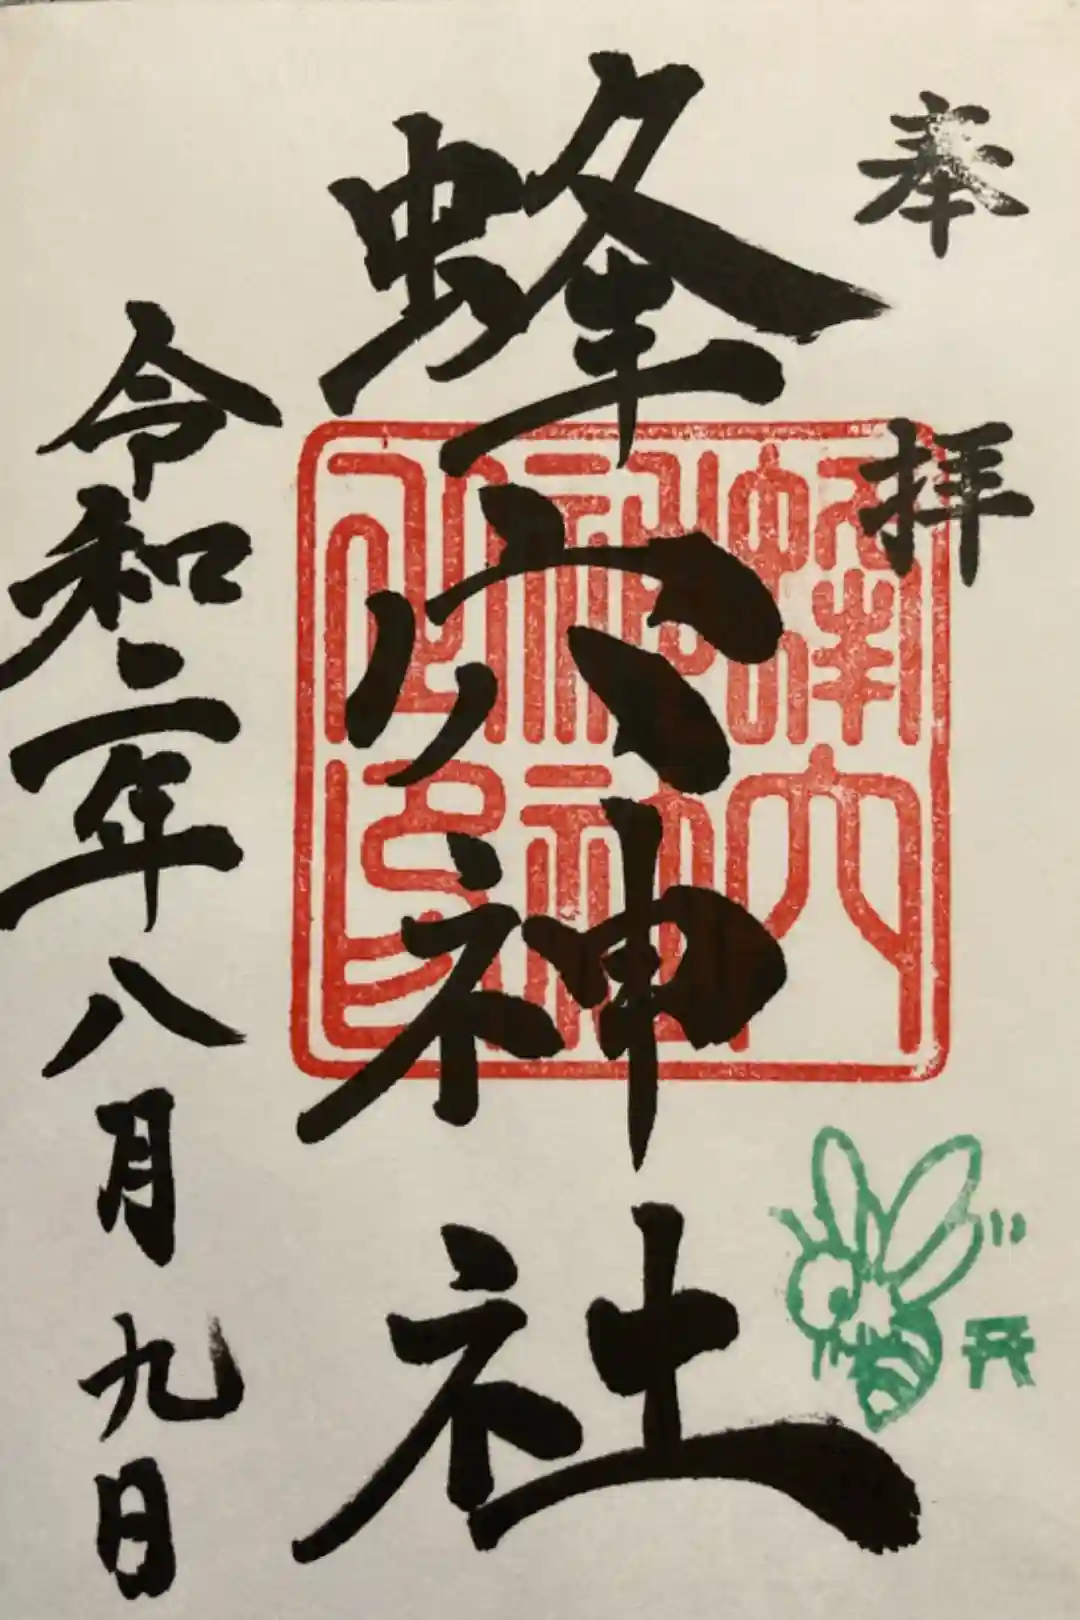 奉拝
蜂穴神社
蜂穴神社之印
令和二年八月九日